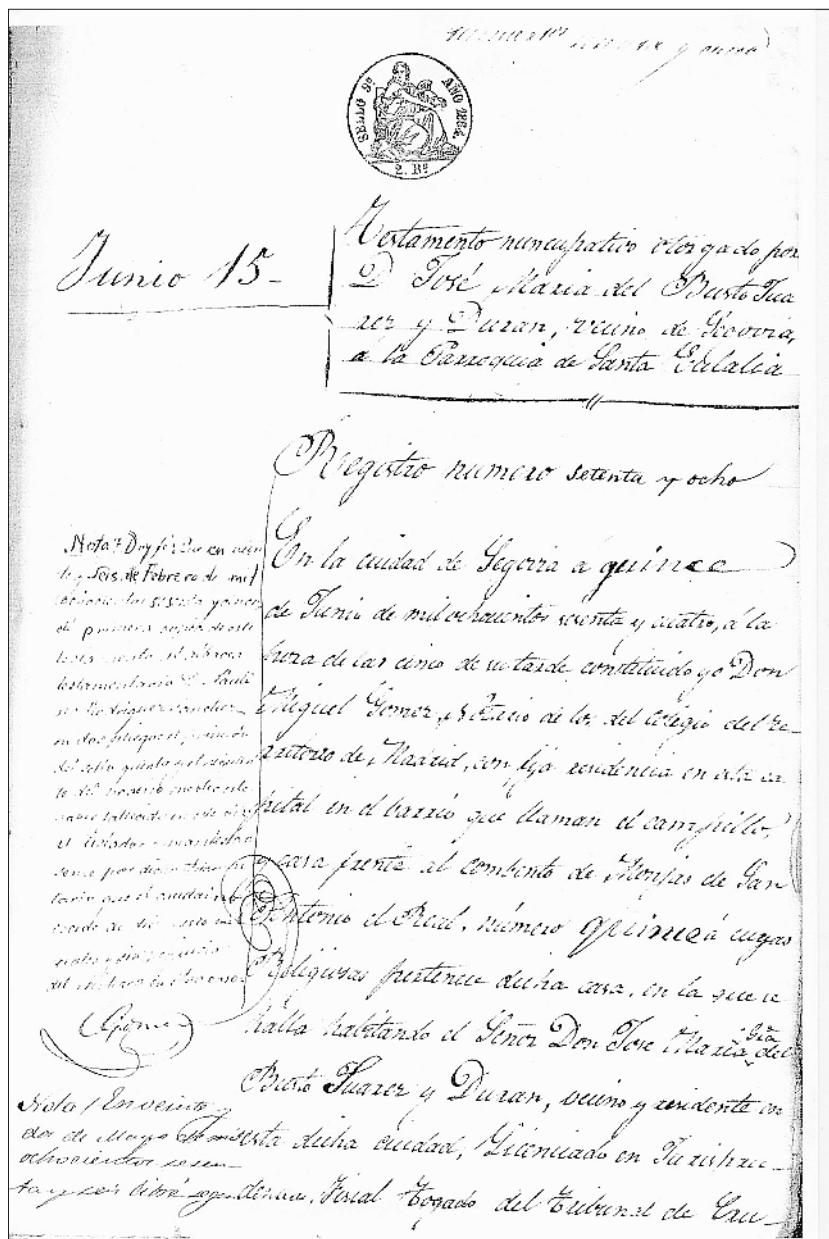 y nueve
SELLO 9º AÑO 1864.
2. Rˢ
Junio 15-
Testamento nuncupativo otorgado por
D José Maria del Busto Sua
rez y Duran, vecino de Segovia,
a la Parroquia de Santa Eulalia
Registro numero setenta y ocho
En la ciudad de Segovia a quince
de Junio de mil ochocientos sesenta y cuatro, á la
hora de las cinco de su tarde, constituido yo Don
Miguel Gomez, Notario de los del colegio del te-
rritorio de Madrid, con fija residencia en esta ca-
pital en el barrio que llaman el campillo,
y casa frente al combento de Monjas de San
Antonio el Real, número quince á cuyas
Religiosas pertenece dicha casa, en la que se
halla habitando el Señor Don Jose Maria del
Busto Suarez y Duran, vecino y residente en
esta dicha ciudad, Licenciado en Jurispru-
dencia, Fiscal Togado del Tribunal de Cru-
Nota: Doy fé: Que en vein
te y seis de Febrero de mil
ochocientos sesenta y
dí primera copia de este
testamento al
testamentario D.
Rodriguez Sanchez
en dos pliegos el
del sello
del
fallecido en
el testador
Gomez
Nota / En veinte y
dos de Mayo de mil
ochocientos sesen-
ta y seis libré